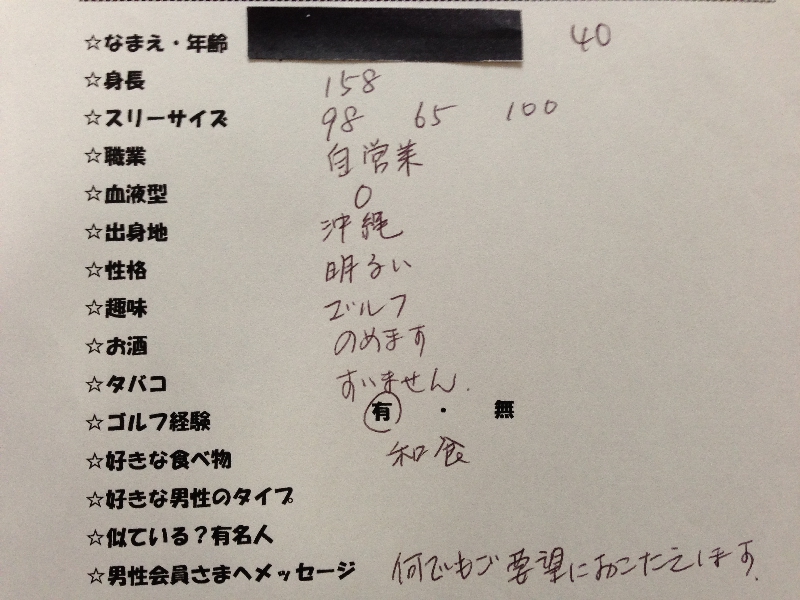 ☆なまえ・年齢 40
☆身長 158
☆スリーサイズ 98 65 100
☆職業 自営業
☆血液型 O
☆出身地 沖縄
☆性格 明るい
☆趣味 ゴルフ
☆お酒 のめます
☆タバコ すいません.
☆ゴルフ経験 有 ・ 無
☆好きな食べ物 和食
☆好きな男性のタイプ
☆似ている?有名人
☆男性会員さまへメッセージ 何でもご要望におこたえします.